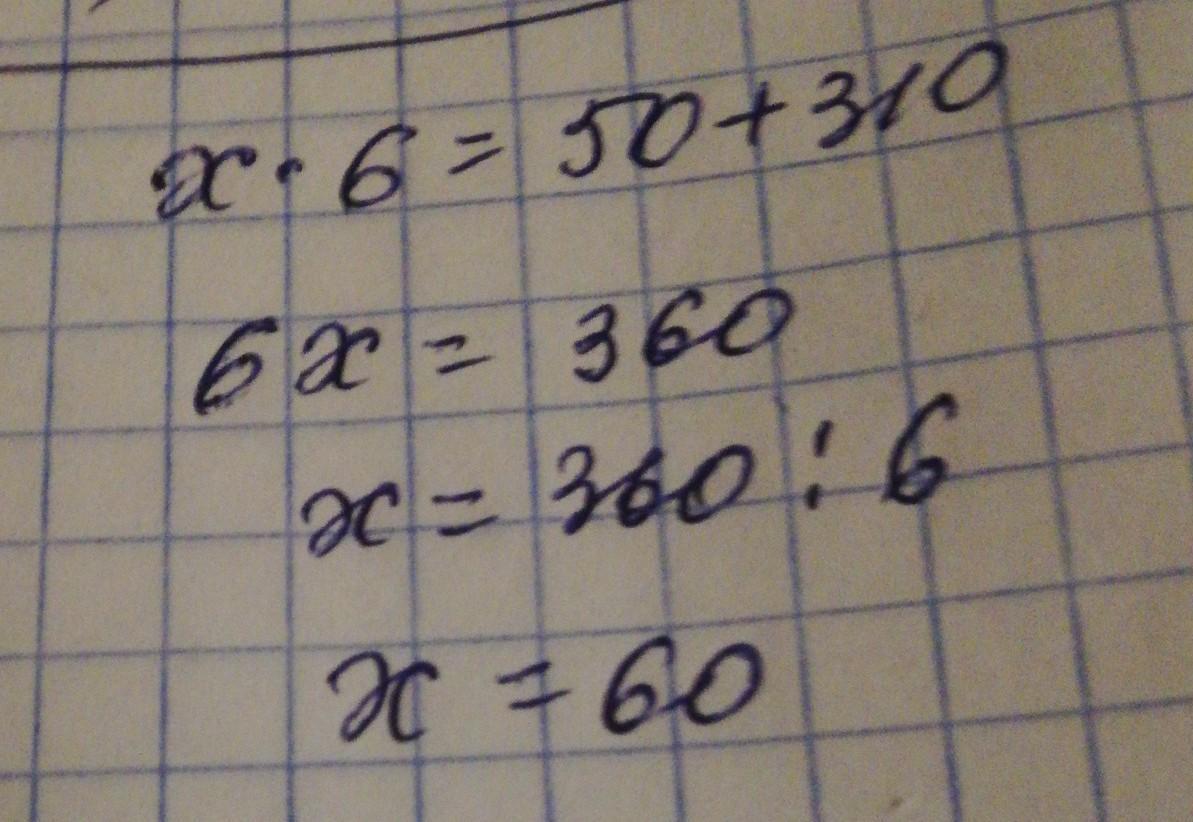 x · 6 = 50 + 310
6x = 360
x = 360 : 6
x = 60